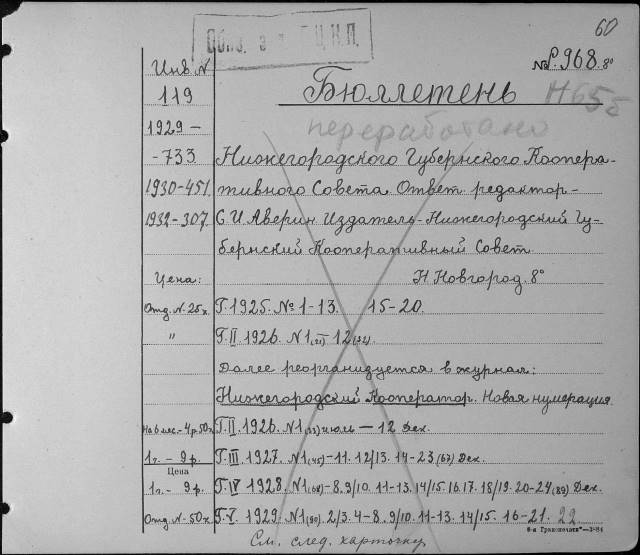 60
№ Р.968.8°
Инв. N
Бюллетень
Н655
119
переработано
1929 –
-733.
Нижегородского Губернского Коопера-
1930-451.
тивного Совета. Ответ. редактор –
1932-307.
С. И. Аверин. Издатель - Нижегородский Гу-
бернский Кооперативный Совет.
Цена:
Н. Новгород. 8°
Отд. N-25к. Г. 1925. № 1-13. 15-20.
" Г. II 1926. N1(21)-12(32).
Далее реорганизуется в журнал:
Нижегородский Кооператор. Новая нумерация.
На 6 мес.-4р.50к. Г. II. 1926. N1(33) июль – 12 Дек.
1г. – 9р. Г. III 1927. N1(45)-11. 12/13. 14-23(67) Дек.
Цена
1г. – 9р. Г. IV 1928. N1(68)-8. 9/10. 11-13. 14/15. 16. 17. 18/19. 20-24(89) Дек.
Отд. N-50к. Г. V. 1929. N1(90). 2/3. 4-8. 9/10. 11-13. 14/15. 16-21. 22
См. след. карточку